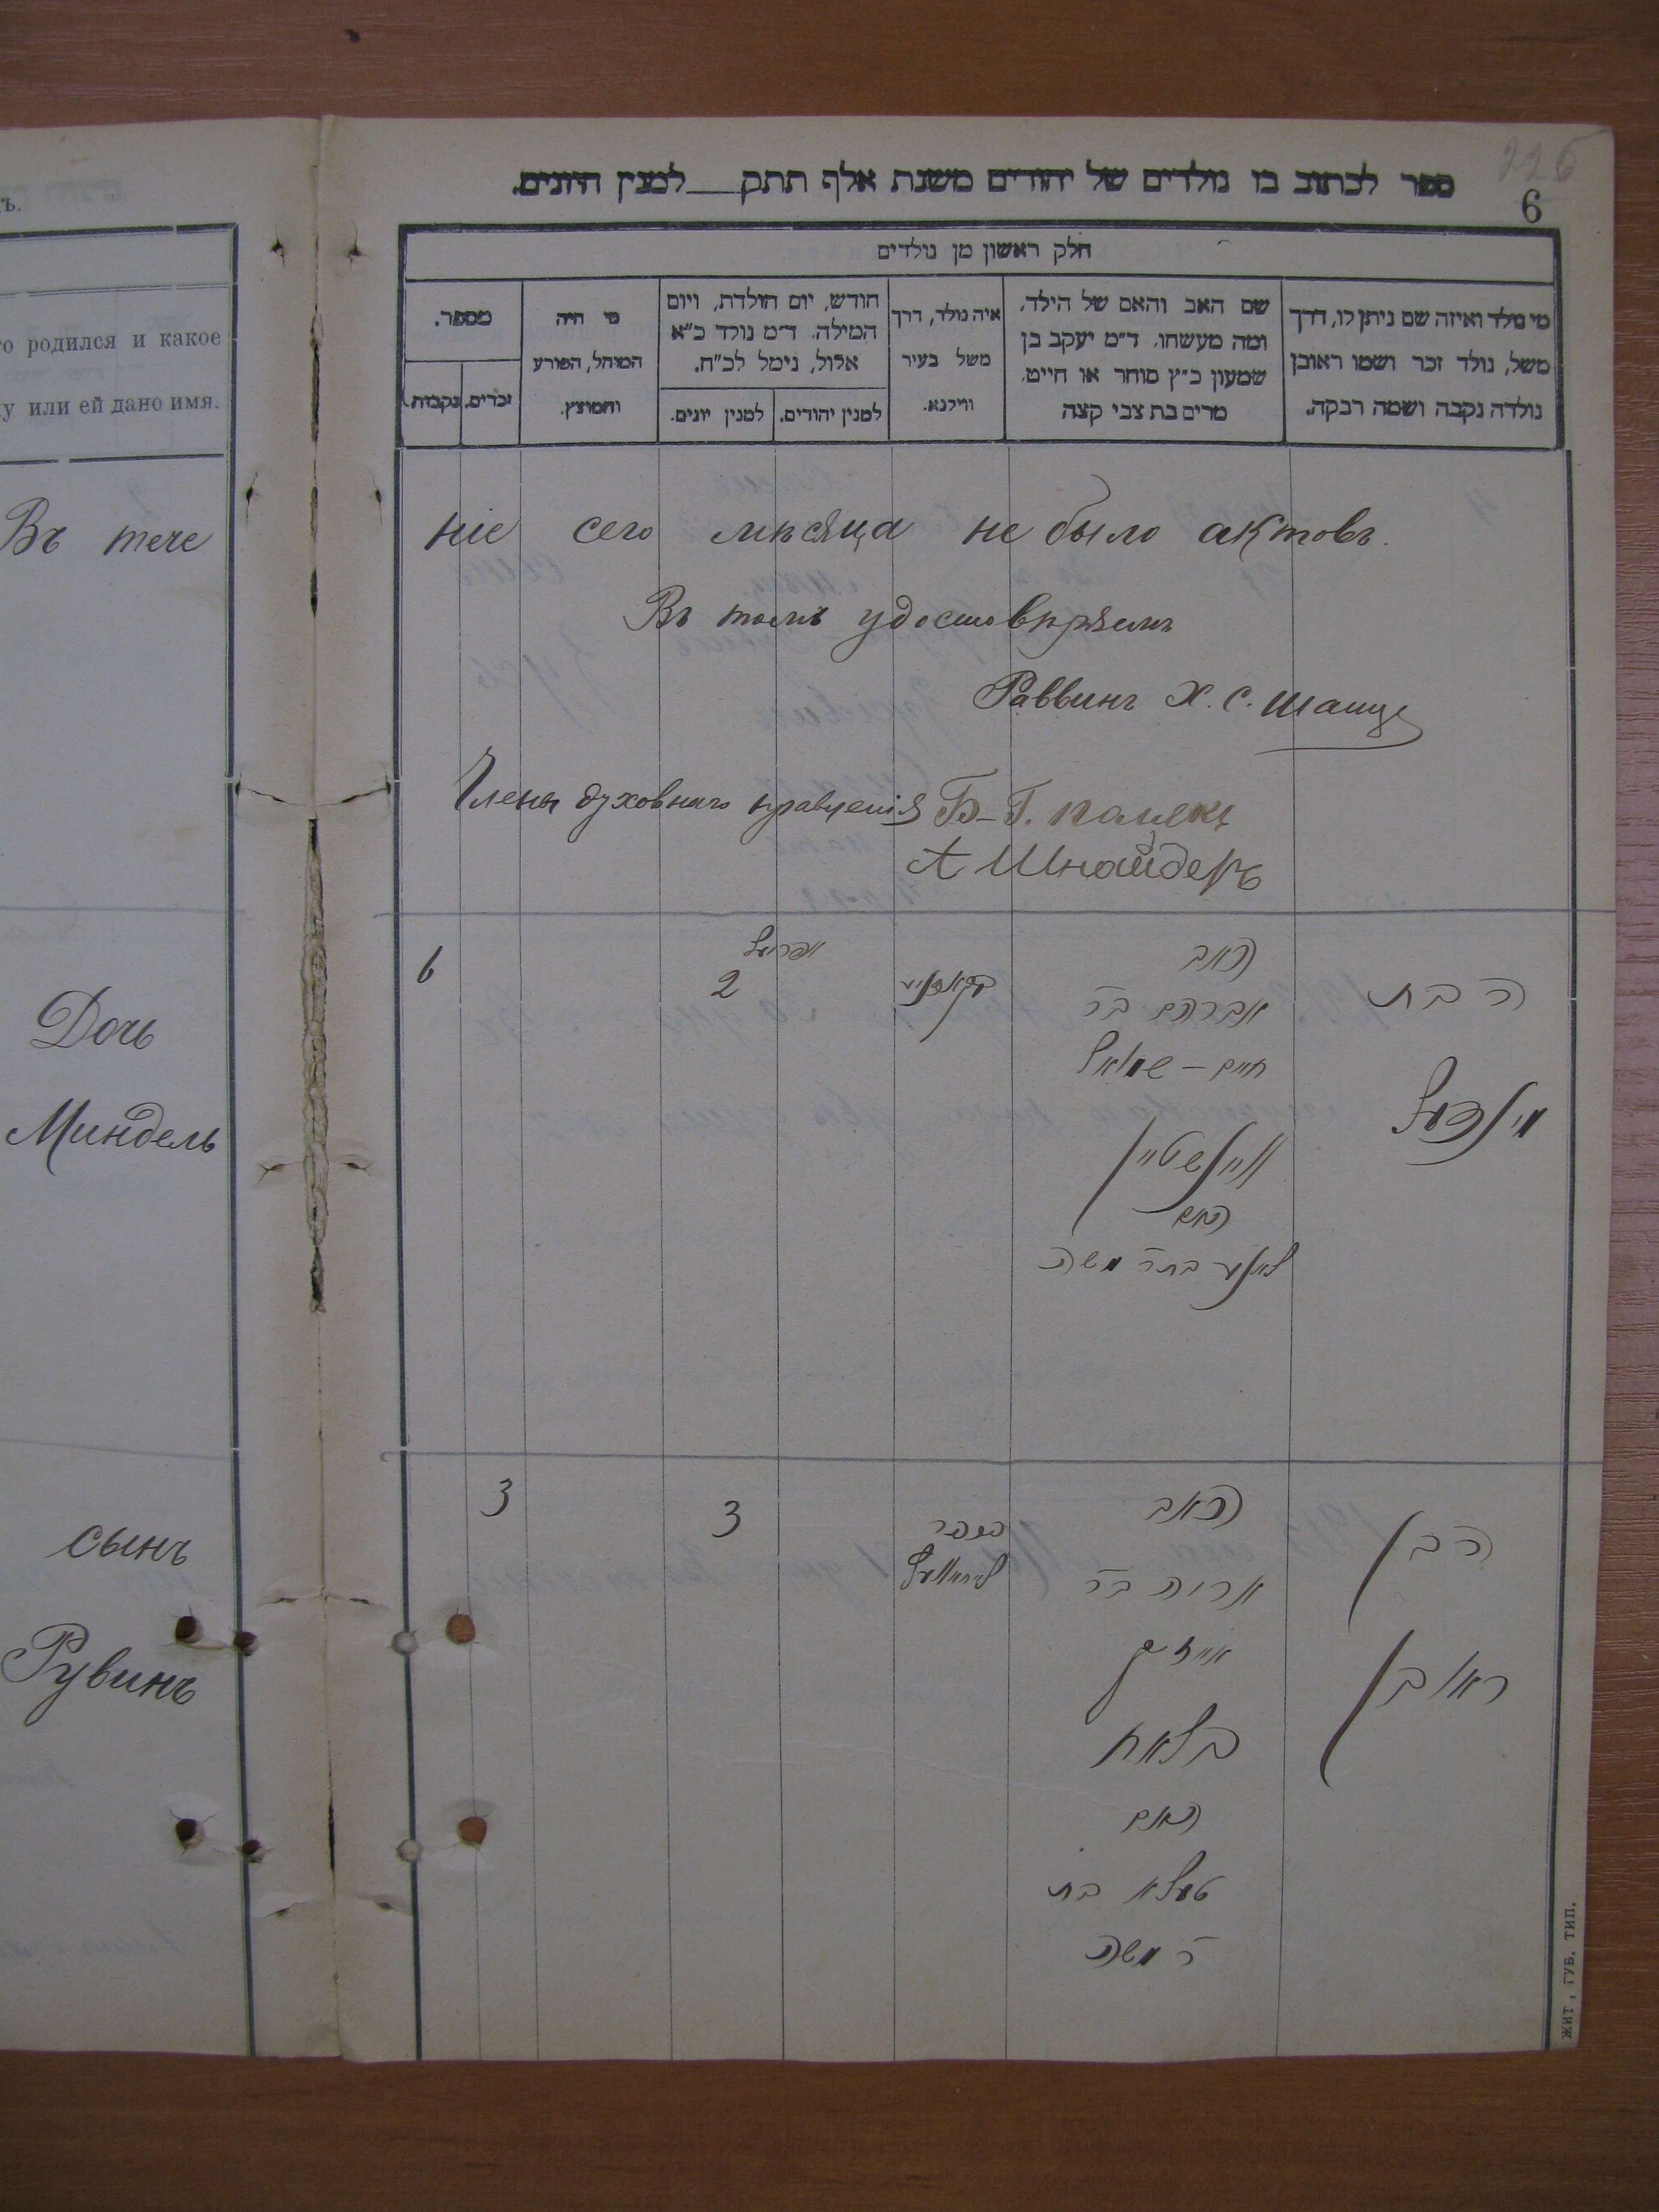 ъ.
го родился и какое
у или ей дано имя.
Въ тече
Дочь
Миндель
сынъ
Рувинъ
226
6
ספר לכתוב בו נולדים של יהודים משנת אלף תתק__למנין היונים.
חלק ראשון מן נולדים
מי נולד ואיזה שם ניתן לו, דרך
משל, נולד זכר ושמו ראובן
נולדה נקבה ושמה רבקה.
שם האב והאם של הילד,
ומה מעשהו. ד״מ יעקב בן
שמעון כ״ץ סוחר או חייט.
מרים בת צבי קצה
איה נולד, דרך
משל בעיר
ווילנא.
חודש, יום הולדת, ויום
המילה. ד״מ נולד כ״א
אלול, נימל לכ״ח.
למנין יהודים.
למנין יונים.
מי היה
המוהל, הפורע
והמוצץ.
מספר.
זכרים.
נקבות
ніе сего мѣсяца не было актовъ.
Въ томъ удостовѣряемъ
Раввинъ Х. С.
Члены духовнаго правленія Б-Г. Полякъ
А Шнайдеръ
הבת
מינדעל
האב
אברהם בר
חיים - שמואל
האם
בתר משה
אפריעל
2
6
הבן
ראובן
האב
אריה בר
אייזיק
בלאח
האם
טעלא בת
ר משה
3
3
ЖИТ, ГУБ. ТИП.